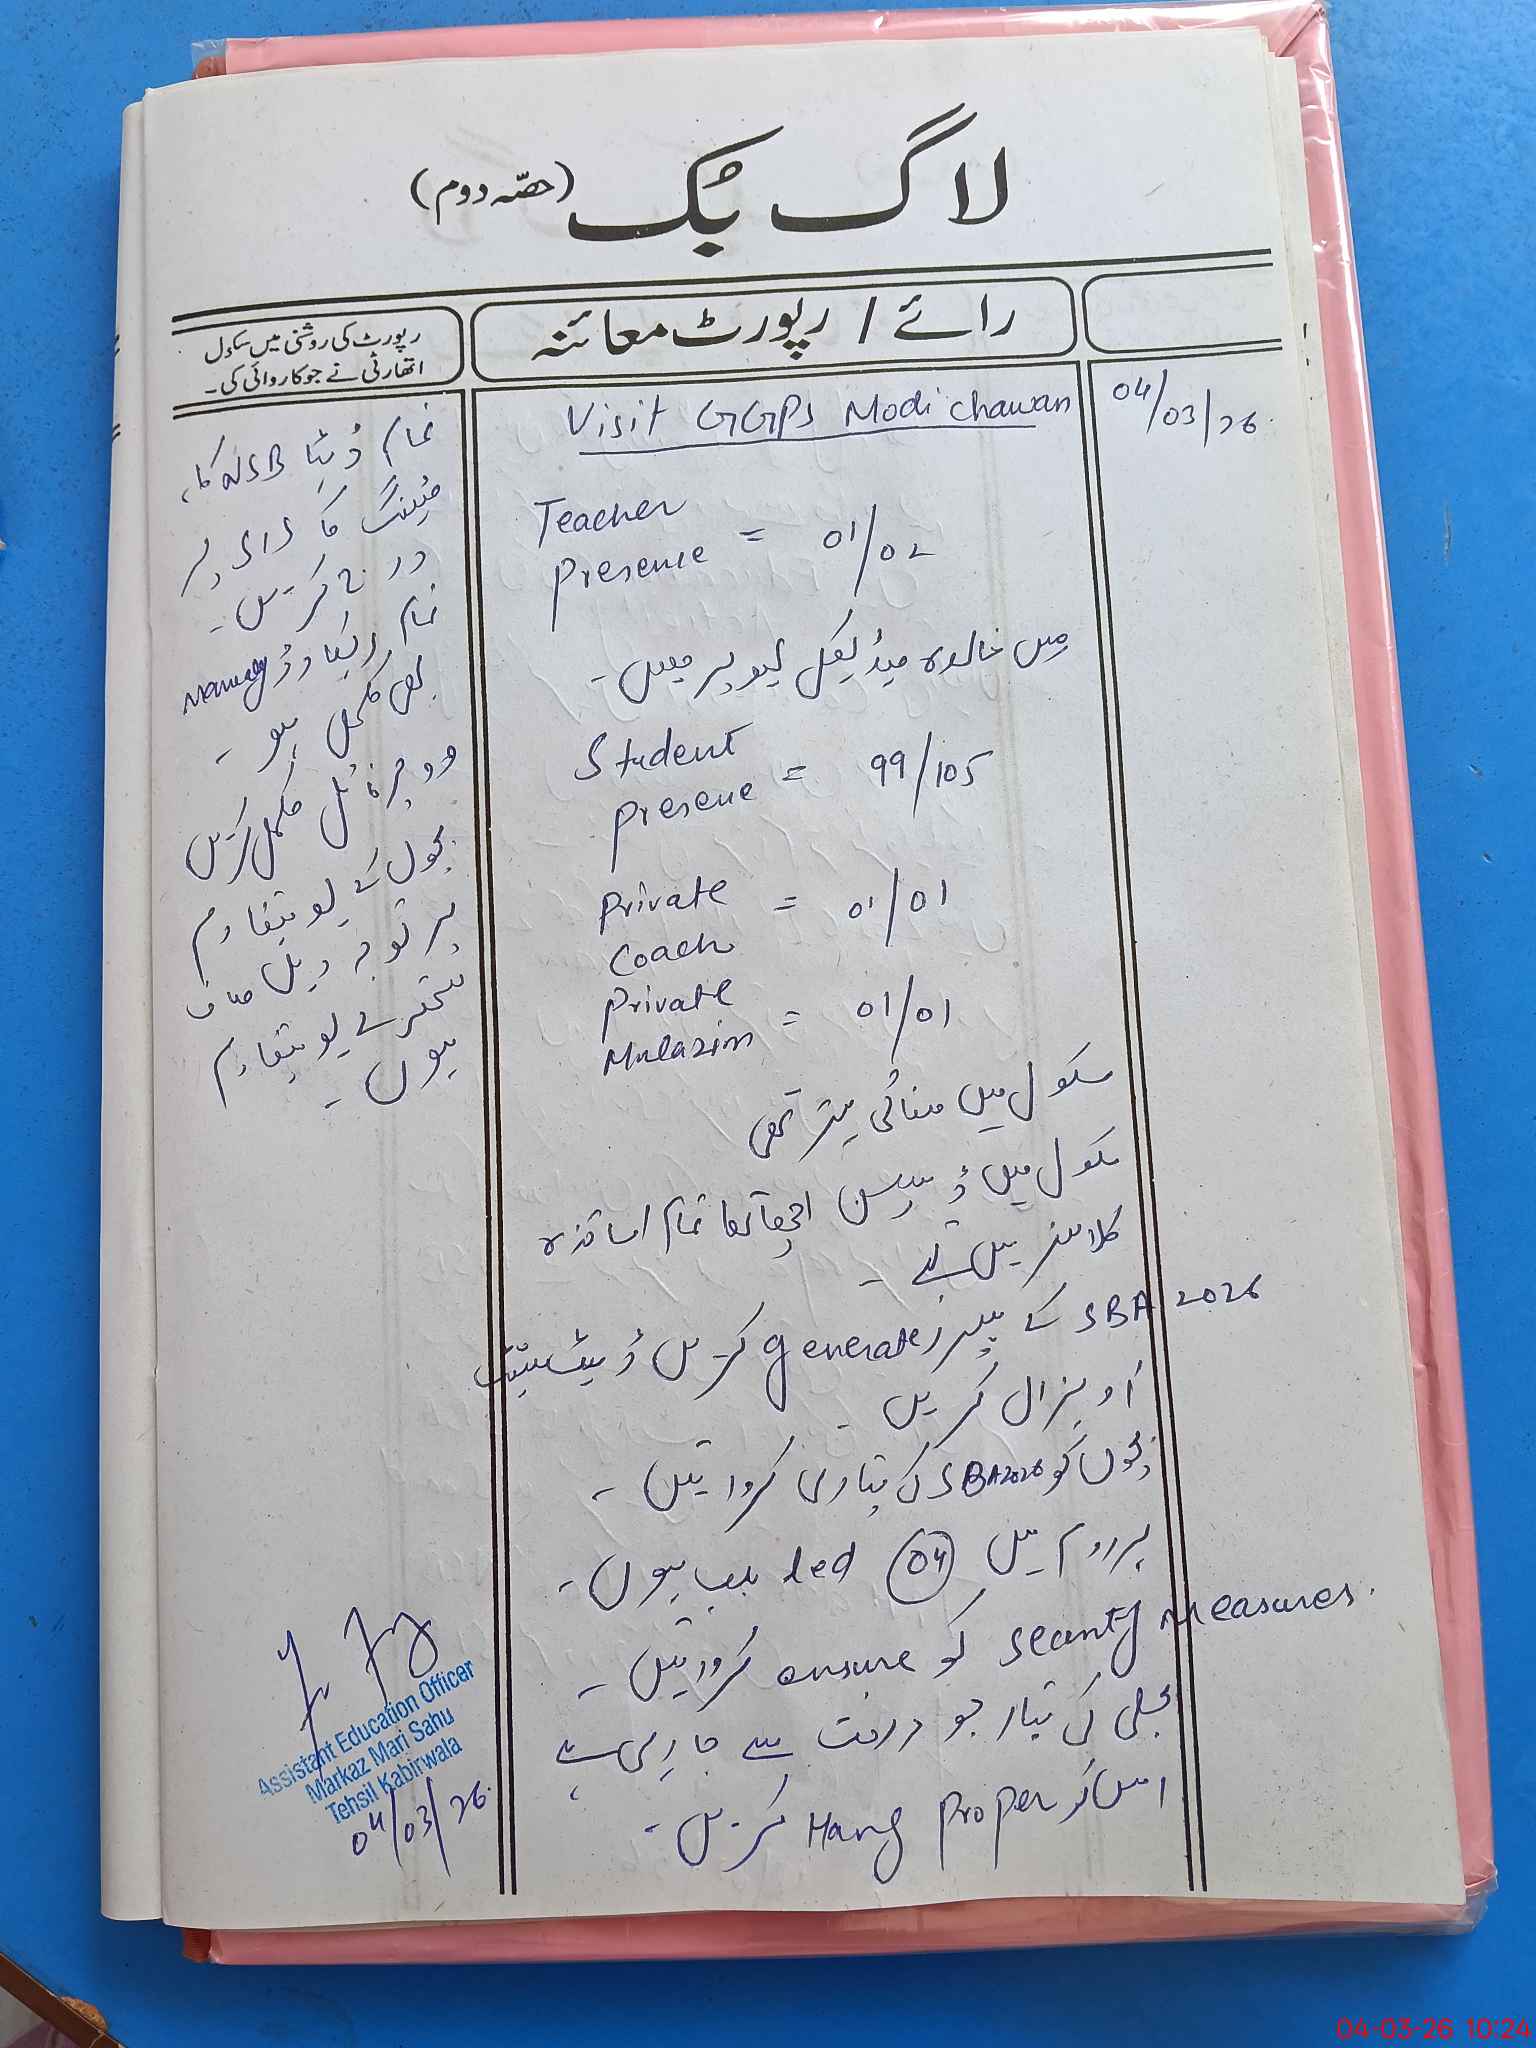 لاگ بُک (حصّہ دوم)
رائے / رپورٹ معائنہ
رپورٹ کی روشنی میں سکول
اتھارٹی نے جو کاروائی کی۔
04/03/26
Visit GGPS Modi chawan
Teacher
presence = 01/02
مس خالدہ میڈیکل لیو پر ہیں۔
Student
presene = 99/105
Private = 01/01
Coach
Private
Mulazim = 01/01
سکول میں صفائی بہتر تھی
سکول میں ڈسپلن اچھا تھا تمام اساتذہ
کلاسز میں تھے۔
SBA 2026 کے پیپرز generate کریں ڈیٹ شیٹ
آویزاں کریں۔
بچوں کو SBA2026 کی تیاری کروائیں۔
ہر روم میں 04 led بلب ہوں۔
Security Measures کو ensure کروائیں۔
بجلی کی تار جو درخت سے جا رہی ہے
اس کو Proper Hang کریں۔
تمام ڈیٹا NSB کا،
میٹنگ کا SIS پر
درج کریں۔
تمام ریکارڈ Manualy
بھی مکمل ہو۔
ووچر فائل مکمل کریں
بچوں کے یونیفارم
پر توجہ دیں صاف
ستھرے یونیفارم
ہوں۔
Assistant Education Officer
Markaz Mari Sahu
Tehsil Kabirwala
04/03/26
04-03-26 10:24